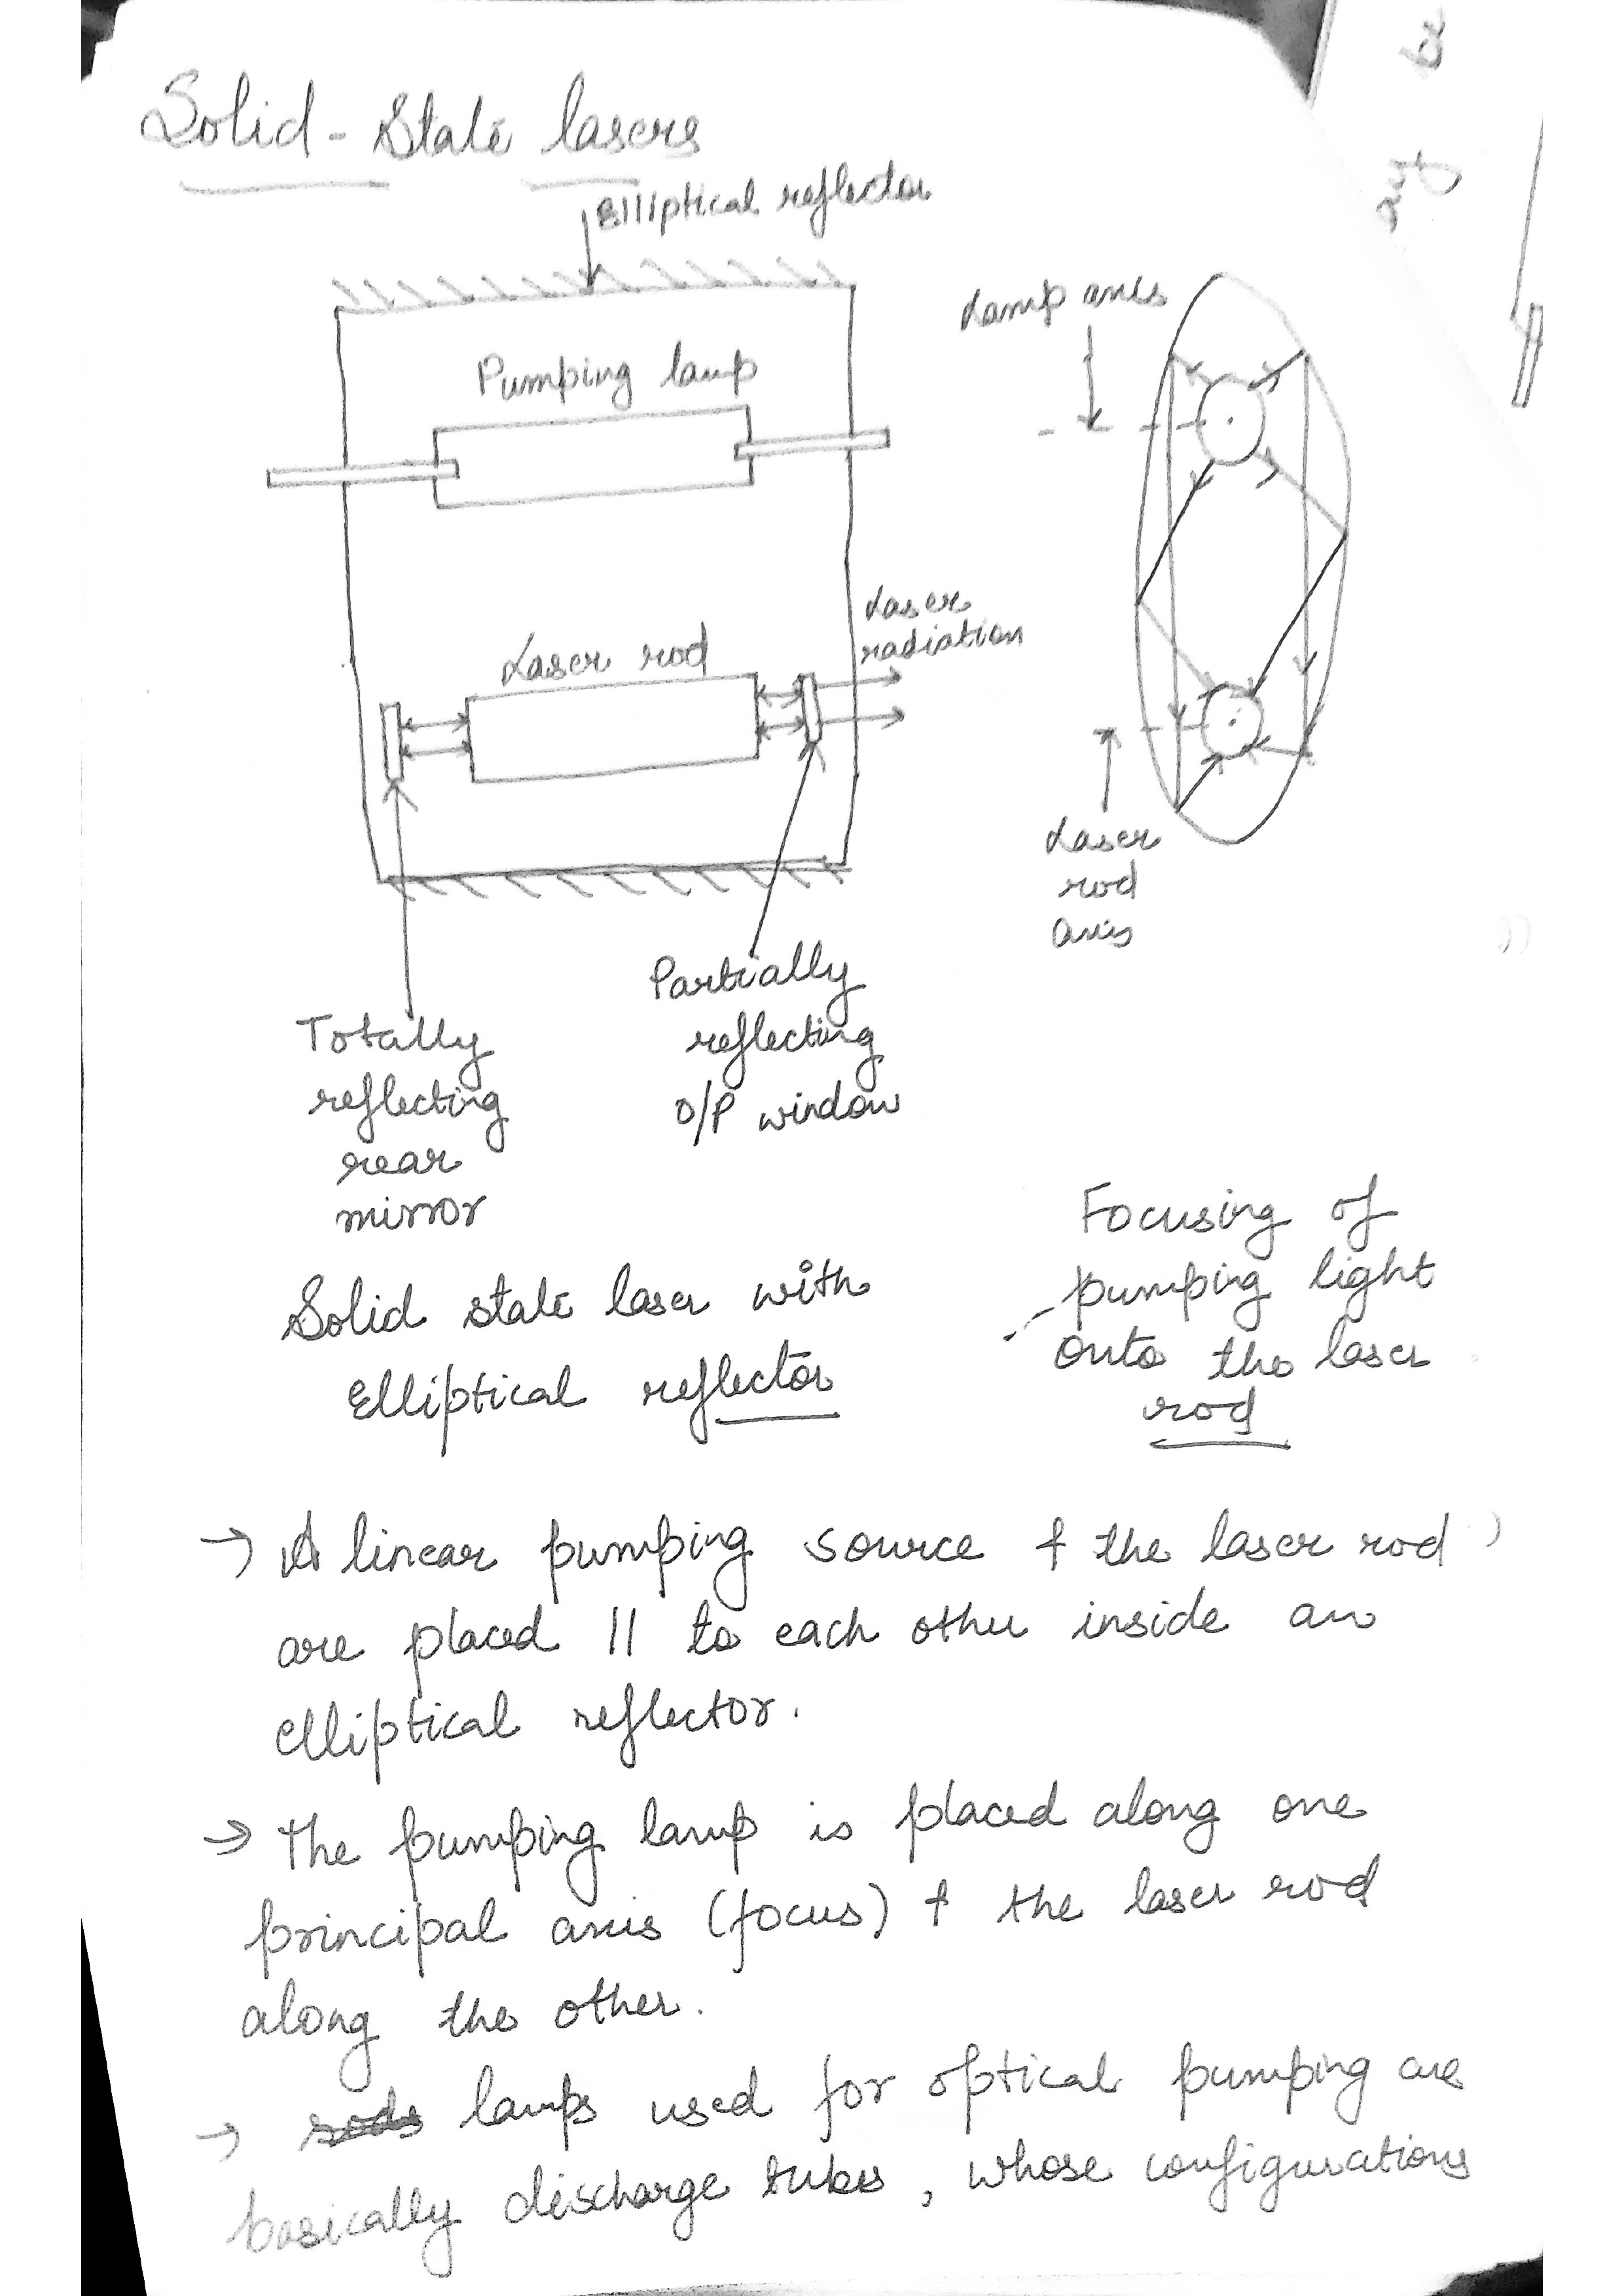 Solid-State lasers
Elliptical reflector
Pumping lamp
Laser rod
Laser
radiation
Totally
reflecting
rear
mirror
Partially
reflecting
O/P window
Lamp axis
Laser
rod
axis
Solid state laser with
Elliptical reflector
Focusing of
pumping light
onto the laser
rod
→ A linear pumping source & the laser rod
are placed || to each other inside an
elliptical reflector.
→ The pumping lamp is placed along one
principal axis (focus) & the laser rod
along the other.
→ lamps used for optical pumping are
basically discharge tubes, whose configurations